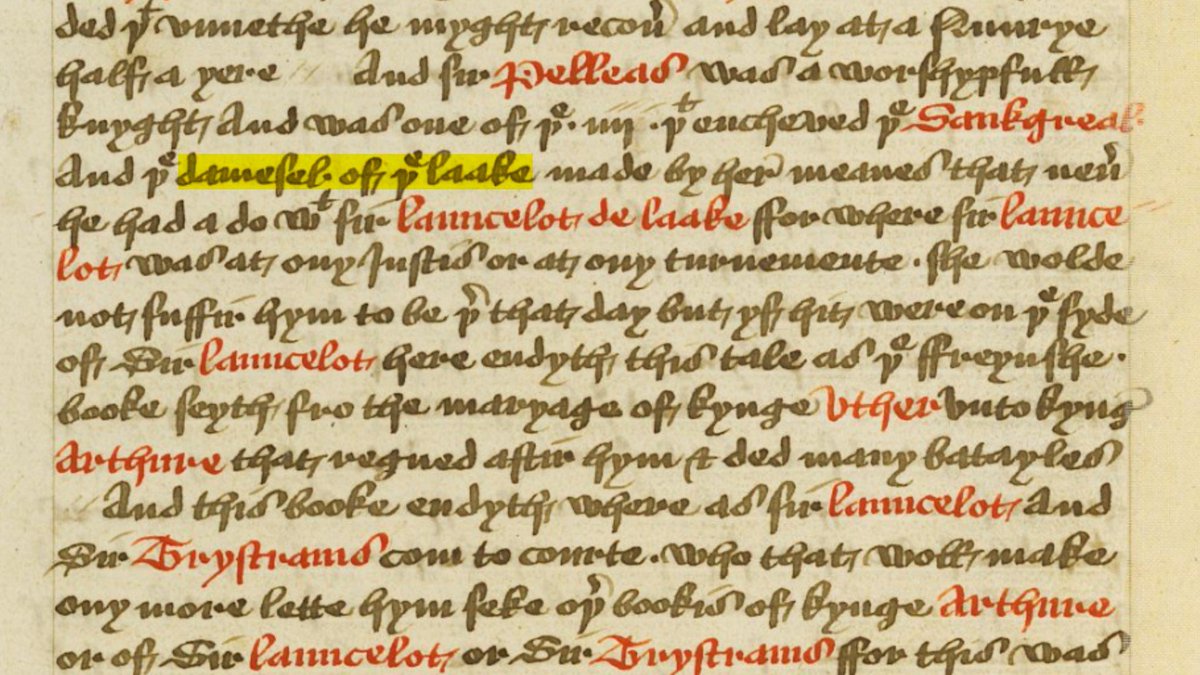 ded þᵗ vnnethe he myght recoũ and lay at a Nunrye
half a yere And sir Pelleas was a worshypfull
knyght And was one of þᵉ · iiij · þᵗ encheved þᵉ Sankgreal
And þᵉ damesel of þᵉ laake made by her meanes that neũ
he had a do wᵗ sir launcelot de laake ffor where sir launce
lot was at ony Justis or at ony turnemente · she wolde
not suffir hym to be þ̉ that day but yf hit were on þᵉ syde
of Sir launcelot here endyth this tale as þᵉ ffreynshe ·
booke seyth fro the maryage of kynge Vther vnto kyng
Arthure that regned aftir hym & ded many batayles
And this booke endyth where as sir launcelot And
Sir Trystrams com to courte · who that woll make
ony more lette hym seke oþ̉ bookis of kynge Arthure
or of Sir launcelot or Sir Trystrams ffor this was